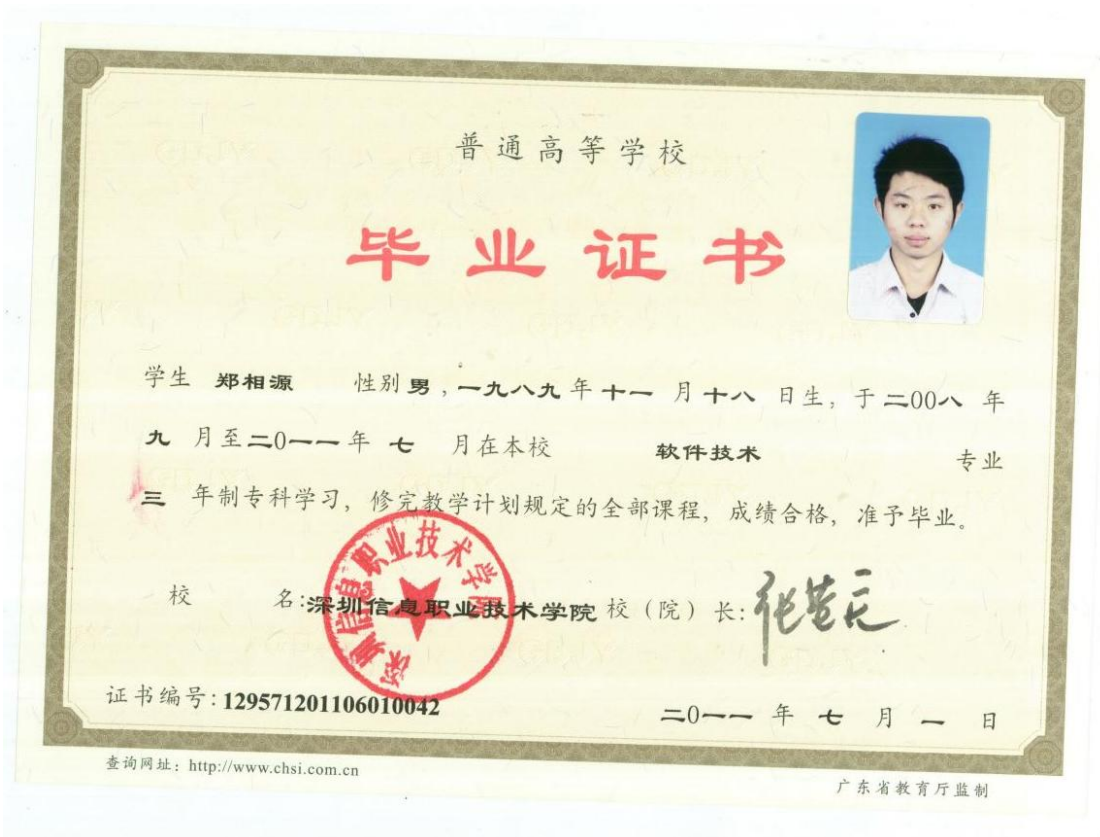 普通高等学校
毕业证书
学生 郑相源 性别 男 , 一九八九 年 十一 月 十八 日生, 于 二00八 年
九 月至 二0一一 年 七 月在本校 软件技术 专业
三 年制专科学习, 修完教学计划规定的全部课程, 成绩合格, 准予毕业。
校 名: 深圳信息职业技术学院 校（院）长:
深圳信息职业技术学院
证书编号: 129571201106010042 二0一一 年 七 月 一 日
查询网址: http://www.chsi.com.cn
广东省教育厅监制